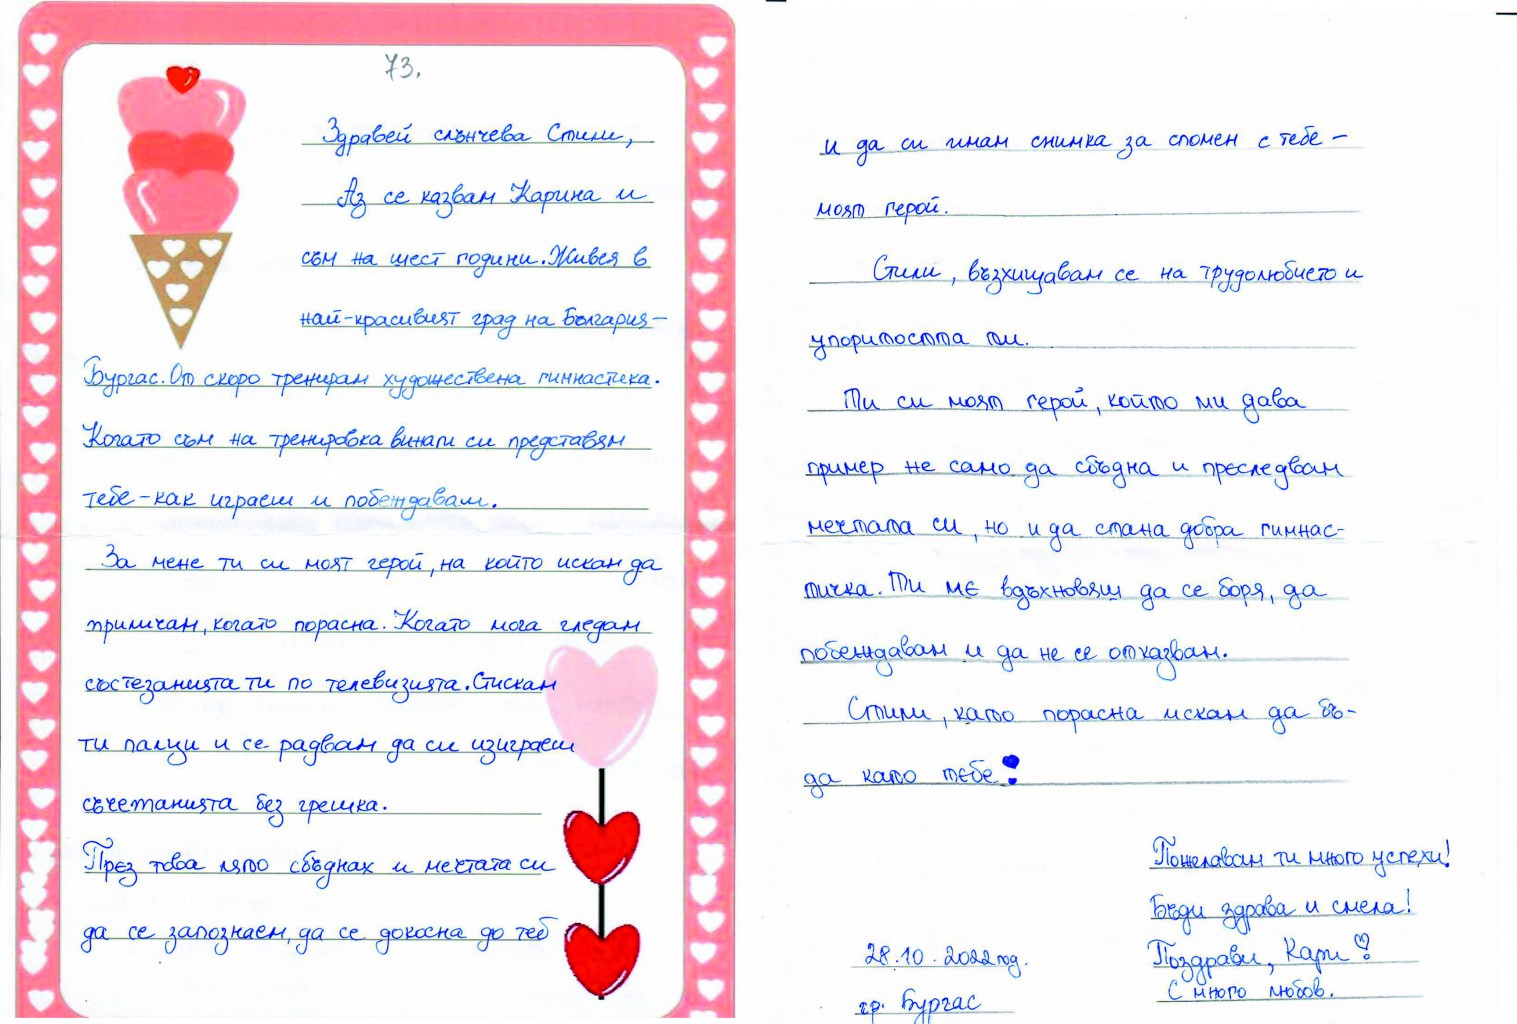 73.
Здравей слънчева Стили,
Аз се казвам Карина и
съм на шест години. Живея в
най-красивият град на България-
Бургас. От скоро тренирам художествена гимнастика.
Когато съм на тренировка винаги си представям
тебе - как играеш и побеждавам.
За мене ти си моят герой, на който искам да
приличам, когато порасна. Когато мога гледам
състезанията ти по телевизията. Стискам
ти палци и се радвам да си изиграеш
съчетанията без грешка.
През това лято сбъднах и мечтата си
да се запознаем, да се докосна до теб
и да си имам снимка за спомен с тебе -
моят герой.
Стили, възхищавам се на трудолюбието и
упоритостта ти.
Ти си моят герой, който ми дава
пример не само да сбъдна и преследвам
мечтата си, но и да стана добра гимнас-
тичка. Ти ме вдъхновяш да се боря, да
побеждавам и да не се отказвам.
Стили, като порасна искам да бъ-
да като тебе!
Пожелавам ти много успехи!
Бъди здрава и смела!
28.10.2022 год.
Поздрави, Кари
гр. Бургас
С много любов.